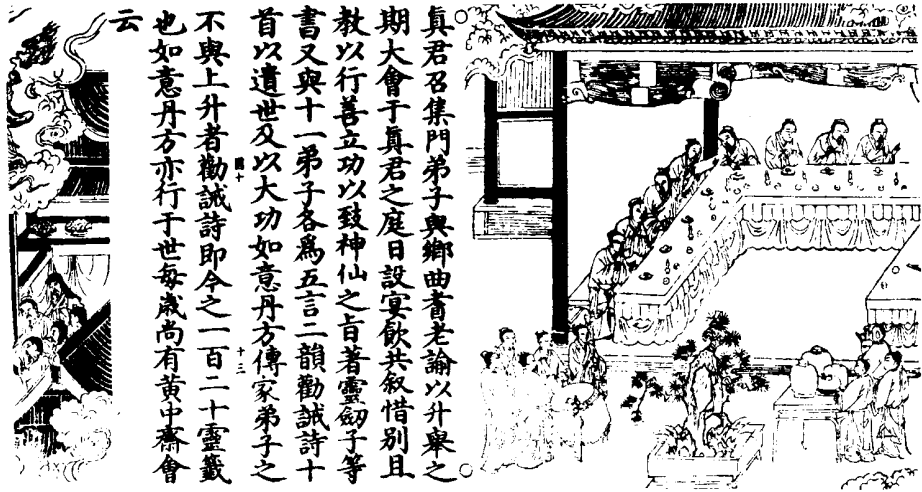 真君召集門弟子與鄉曲耆老諭以升舉之
期大會于真君之庭日設宴飲共叙惜別且
教以行善立功以致神仙之旨著靈劒子等
書又與十一弟子各為五言二韻勸誡詩十
首以遺世及以大功如意丹方傳家弟子之
不與上升者勸誡詩即今之一百二十靈籤
也如意丹方亦行于世每歲尚有黃中齋會
云
十三